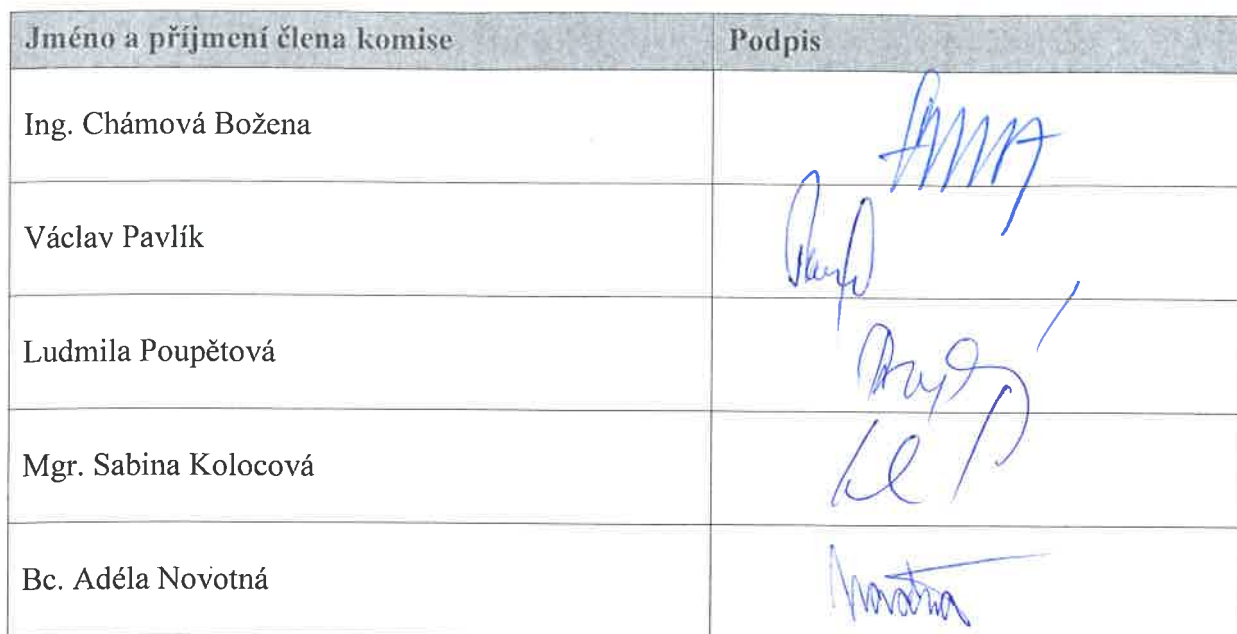 Jméno a příjmení člena komise Podpis
Ing. Chámová Božena
Václav Pavlík
Ludmila Poupětová
Mgr. Sabina Kolocová
Bc. Adéla Novotná